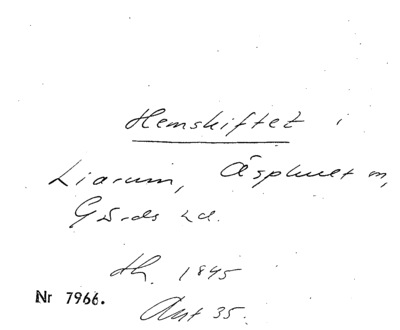 Hemskiftet i
Liarum, Äsphult m,
Gärds hd.
th. 1845
Nr 7966.
Akt 35.